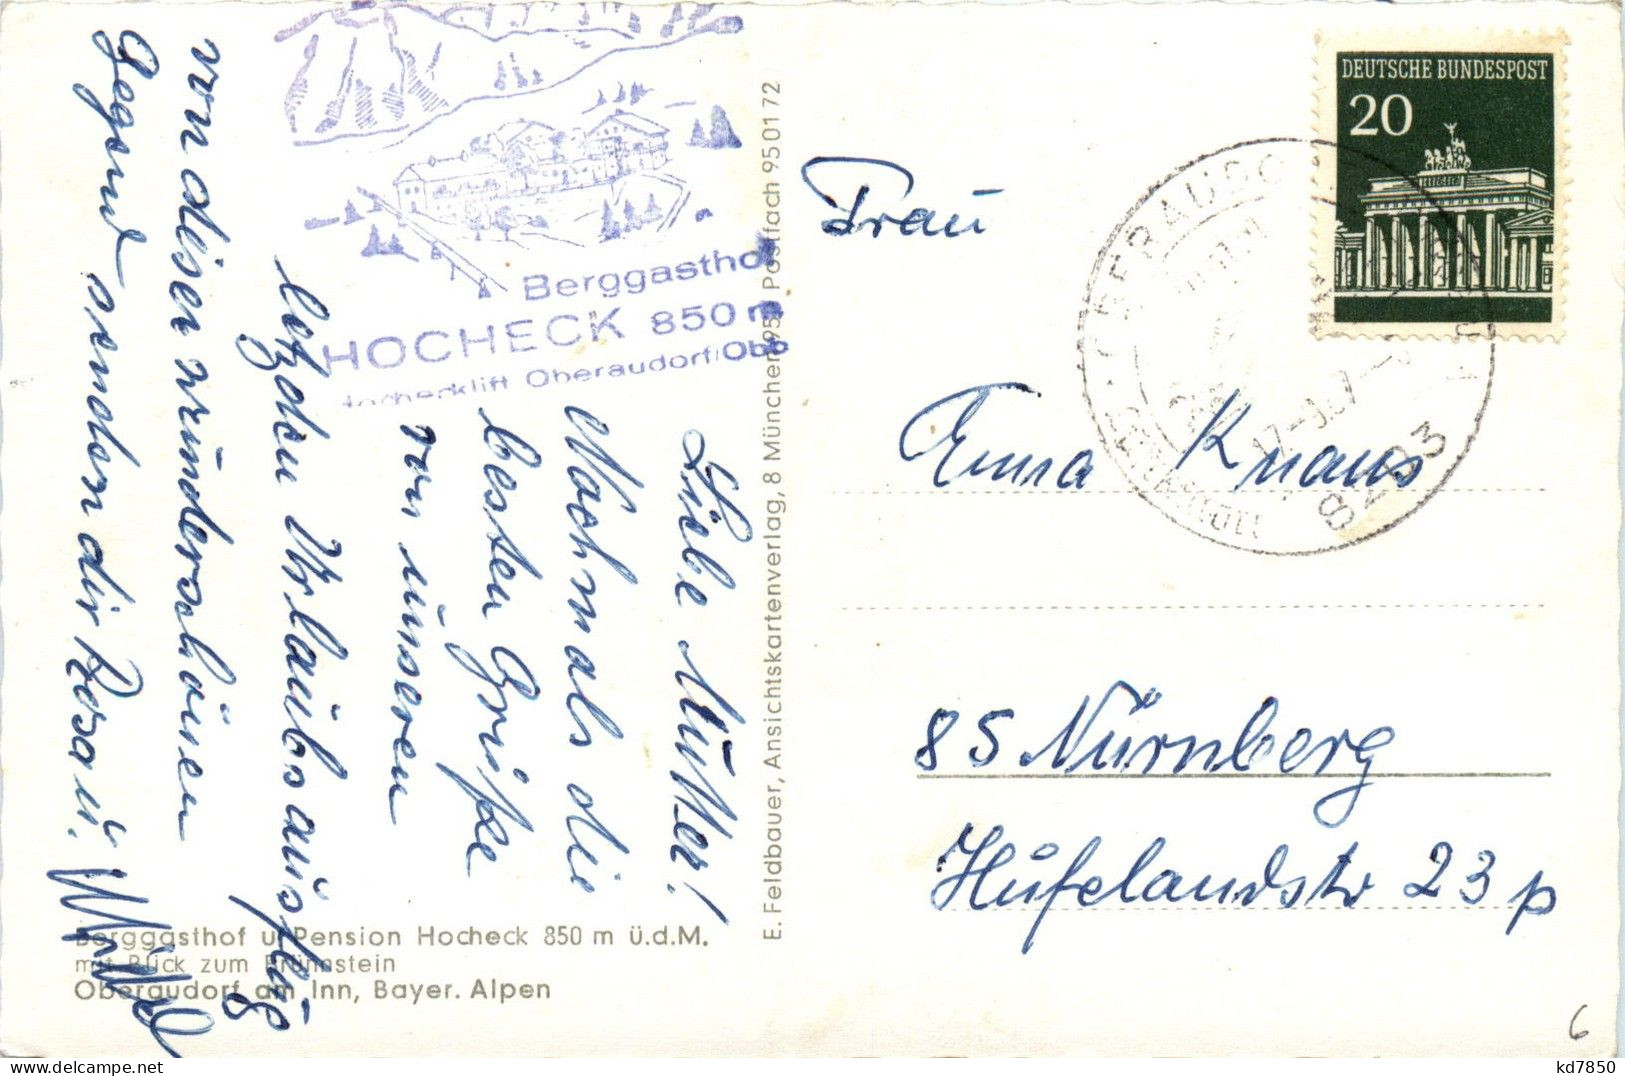 Liebe Mutter!
Nochmals die
besten Grüße
von unseren
letzden Urlaubsausflug
von diser wunderschönen
Gegend senden dir Rosa u.
Berggasthof
HOCHECK 850 m
Hochecklift Oberaudorf/Obb
Berggasthof u. Pension Hocheck 850 m ü.d.M.
mit Blick zum Brünnstein
Oberaudorf am Inn, Bayer. Alpen
E. Feldbauer, Ansichtskartenverlag, 8 München 95, Postfach 9501 72
DEUTSCHE BUNDESPOST
20
OBERAUDORF
8203
Frau
Anna Knaus
85 Nürnberg
Hufelandstr 23 p
6
kd7850